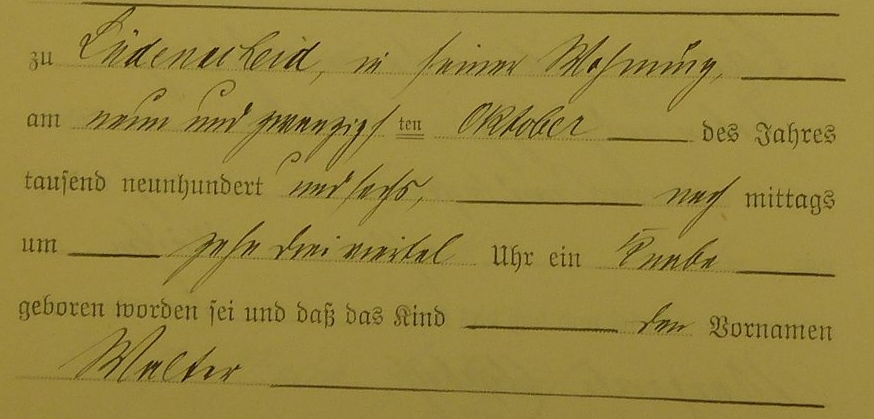 zu Lüdenscheid, in seiner Wohnung,
am neun und zwanzigsten Oktober des Jahres
tausend neunhundert und sechs, nach mittags
um zehn drei viertel Uhr ein Knabe
geboren worden sei und daß das Kind den Vornamen
Walter